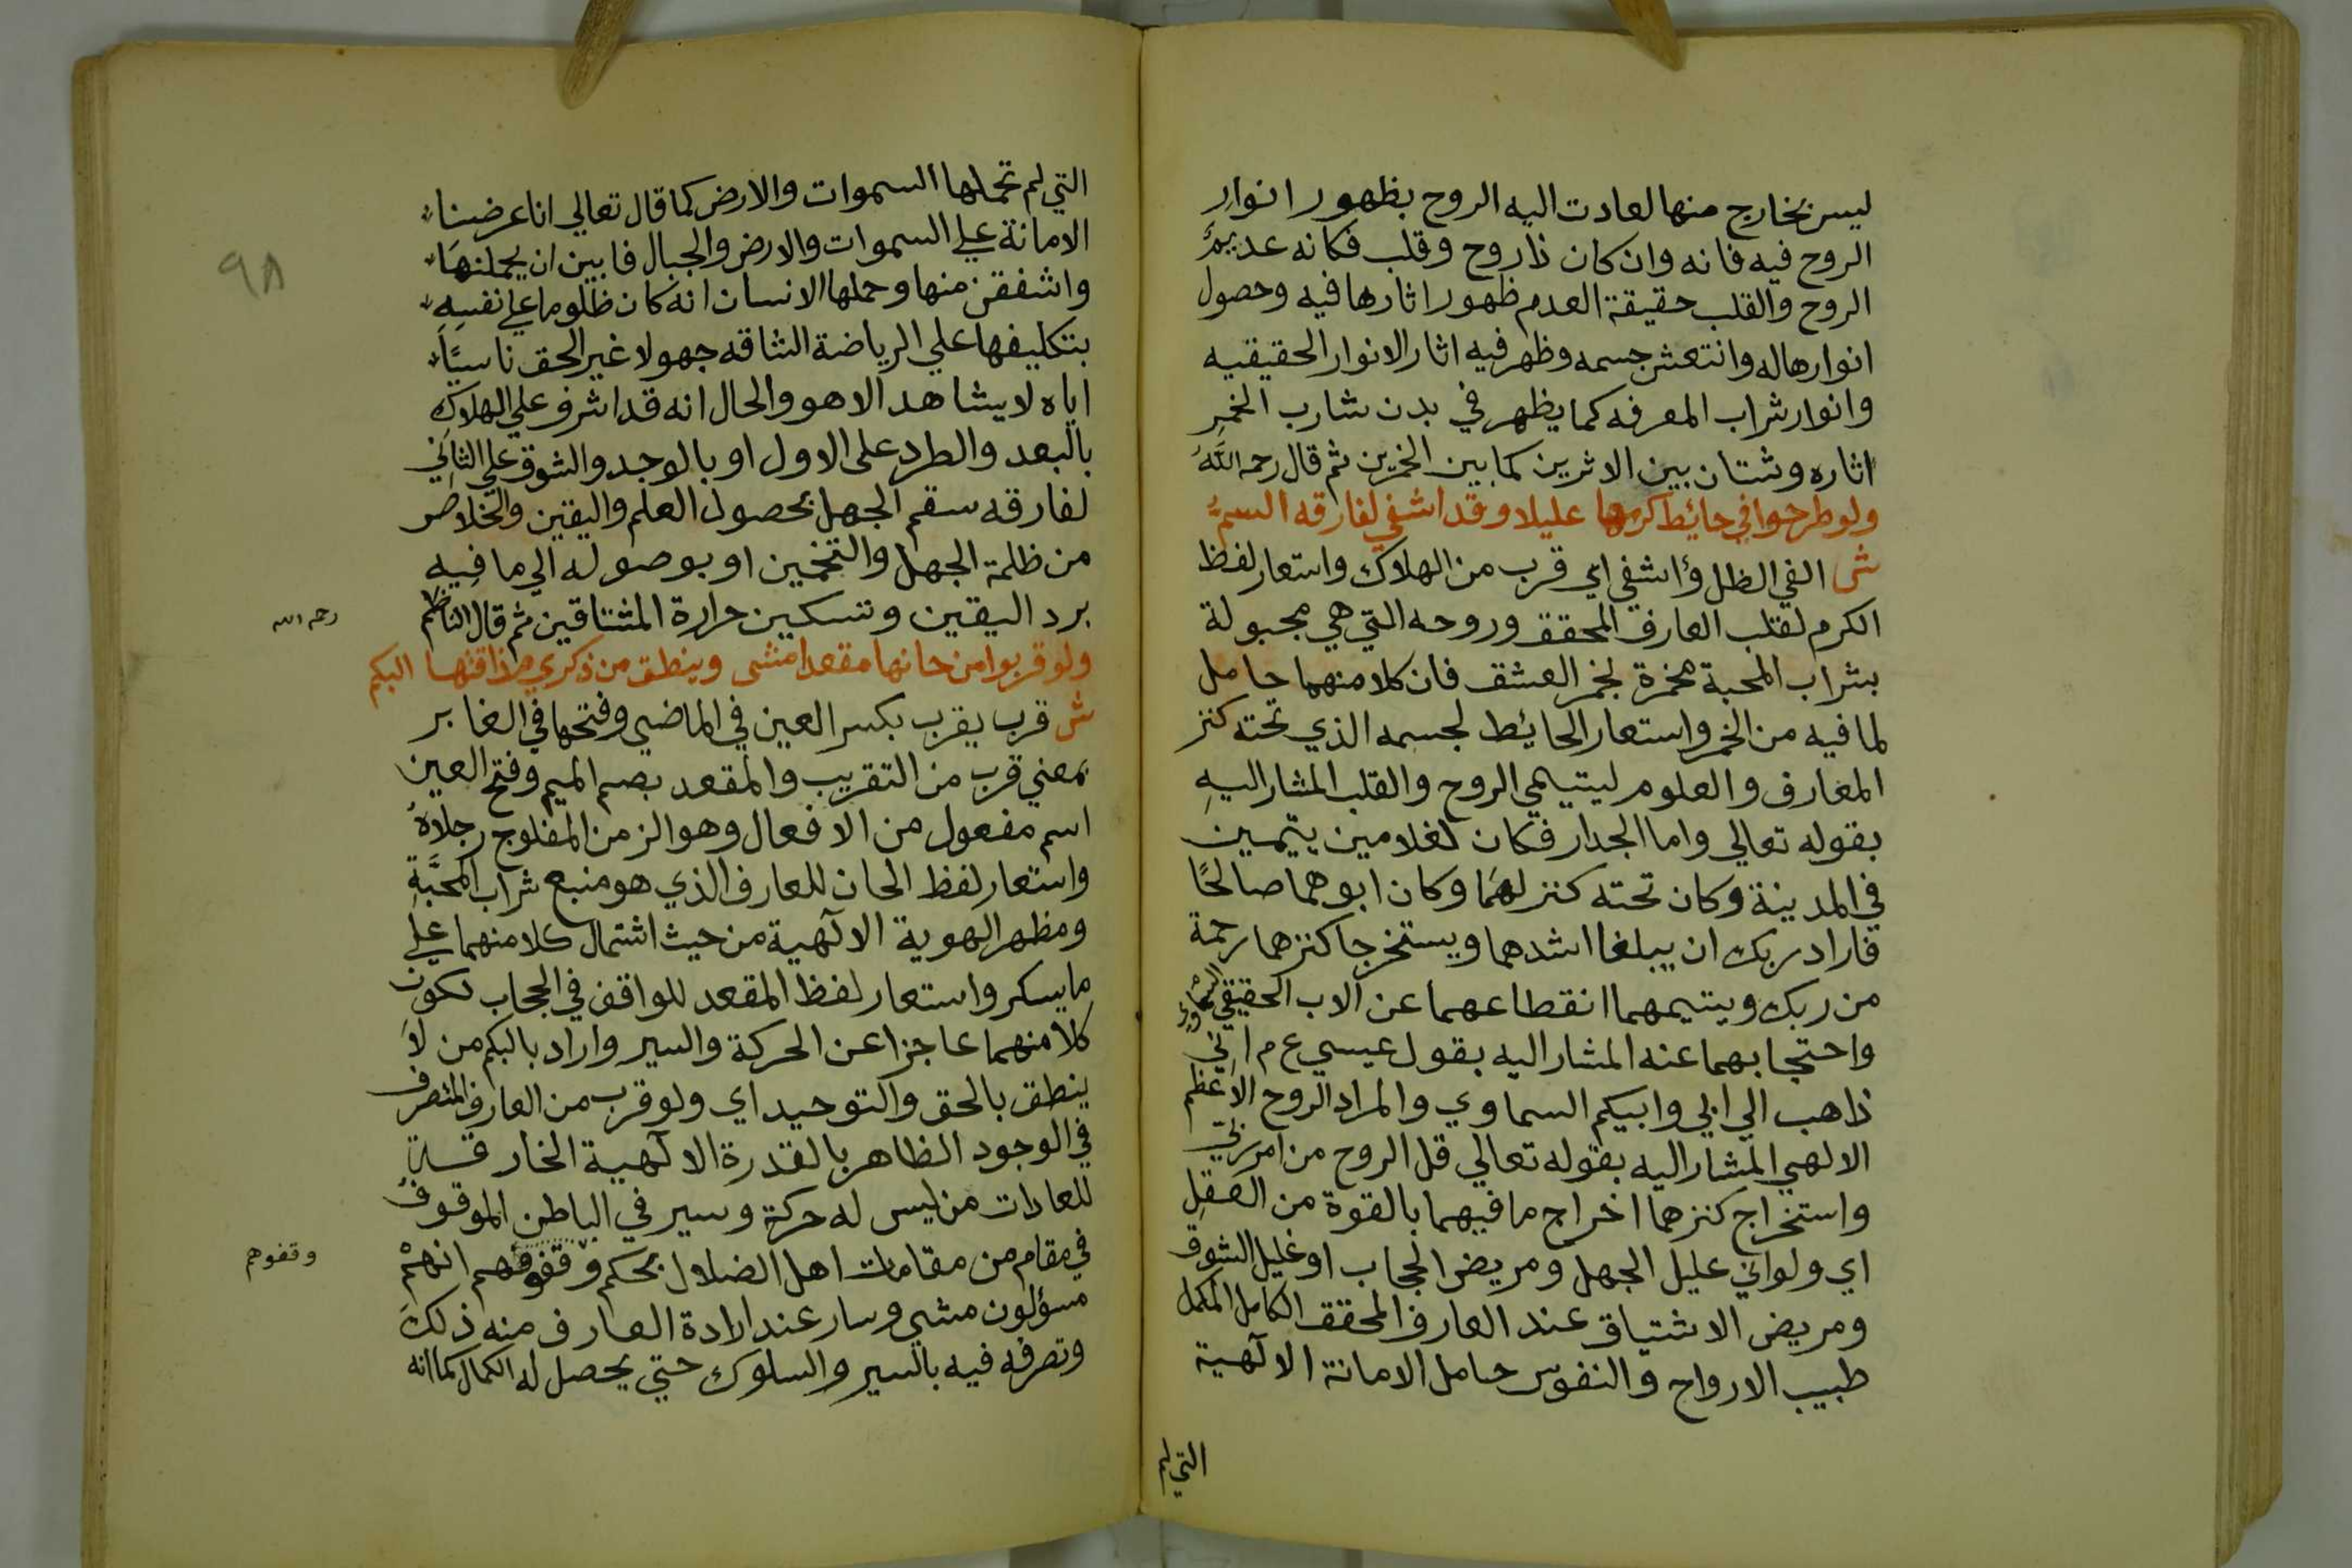 ليس بخارج منها لعادت اليه الروح بظهور انوار
الروح فيه فانه وان كان ذا روح وقلب فكانه عديم
الروح والقلب حقيقة العدم ظهور اثارها فيه وحصول
انوارها له وانتعش جسمه وظهر فيه اثار الانوار الحقيقيه
وانوار شراب المعرفه كما يظهر في بدن شارب الخمر
اثاره وشتان بين الاثرين كما بين الخمرين ثم قال رحمه الله
ولو طرحوا في حائط كرمها عليلا وقد اشفي لفارقه السم
ش الفي الظل واشفي اي قرب من الهلاك واستعار لفظ
الكرم لقلب العارف المحقق وروحه التي هي مجبولة
بشراب المحبة مخمرة بخمر العشق فان كلا منهما حامل
لما فيه من الخمر واستعار الحايط لجسمه الذي تحته كنز
المعارف والعلوم ليتيمي الروح والقلب المشار اليه
بقوله تعالي واما الجدار فكان لغلامين يتيمين
في المدينة وكان تحته كنز لهما وكان ابوهما صالحًا
فاراد ربك ان يبلغا اشدهما ويستخرجا كنزهما رحمة
من ربك ويتيمهما انقطاعهما عن الاب الحقيقي السماوي
واحتجابهما عنه المشار اليه بقول عيسي ع م اني
ذاهب الي ابي وابيكم السماوي والمراد الروح الاعظم
الالهي المشار اليه بقوله تعالي قل الروح من امر ربي
واستخراج كنزهما اخراج ما فيهما بالقوة من العقل
اي ولو اتي عليل الجهل ومريض الحجاب او غليل الشوق
ومريض الاشتياق عند العارف المحقق الكامل المكمل
طبيب الارواح والنفوس حامل الامانة الالهية
التي لم
٩٨
التي لم تحملها السموات والارض كما قال تعالي انا عرضنا
الامانة علي السموات والارض والجبال فابين ان يحملنها
واشفقن منها وحملها الانسان انه كان ظلوما علي نفسه
بتكليفها علي الرياضة الشاقه جهولا غير الحق ناسيًا
اياه لا يشاهد الا هو والحال انه قد اشرف علي الهلاك
بالبعد والطرد على الاول او بالوجد والشوق علي الثاني
لفارقه سقم الجهل بحصول العلم واليقين والخلاص
من ظلمة الجهل والتخمين او بوصوله الي ما فيه
برد اليقين وتسكين حرارة المشتاقين ثم قال الناظم
رحمه الله
ولو قربوا من حانها مقعدا مشى وينطق من ذكري مذاقتها البكم
ش قرب يقرب بكسر العين في الماضي وفتحها في الغابر
بمعني قرب من التقريب والمقعد بضم الميم وفتح العين
اسم مفعول من الافعال وهو الزمن المفلوج رجلاه
واستعار لفظ الحان للعارف الذي هو منبع شراب المحبة
ومظهر الهوية الالهية من حيث اشتمال كلا منهما علي
ما يسكر واستعار لفظ المقعد للواقف في الحجاب لكون
كلا منهما عاجزا عن الحركة والسير واراد بالبكم من لا
ينطق بالحق والتوحيد اي ولو قرب من العارف المتصرف
في الوجود الظاهر بالقدرة الالهية الخارقة
للعادات من ليس له حركة وسير في الباطن الموقوف
في مقام من مقامات اهل الضلال بحكم وقفوفهم انهم
وقفوهم
مسؤلون مشي وسار عند ارادة العارف منه ذلك
وتصرفه فيه بالسير والسلوك حتي يحصل له الكمال كما انه